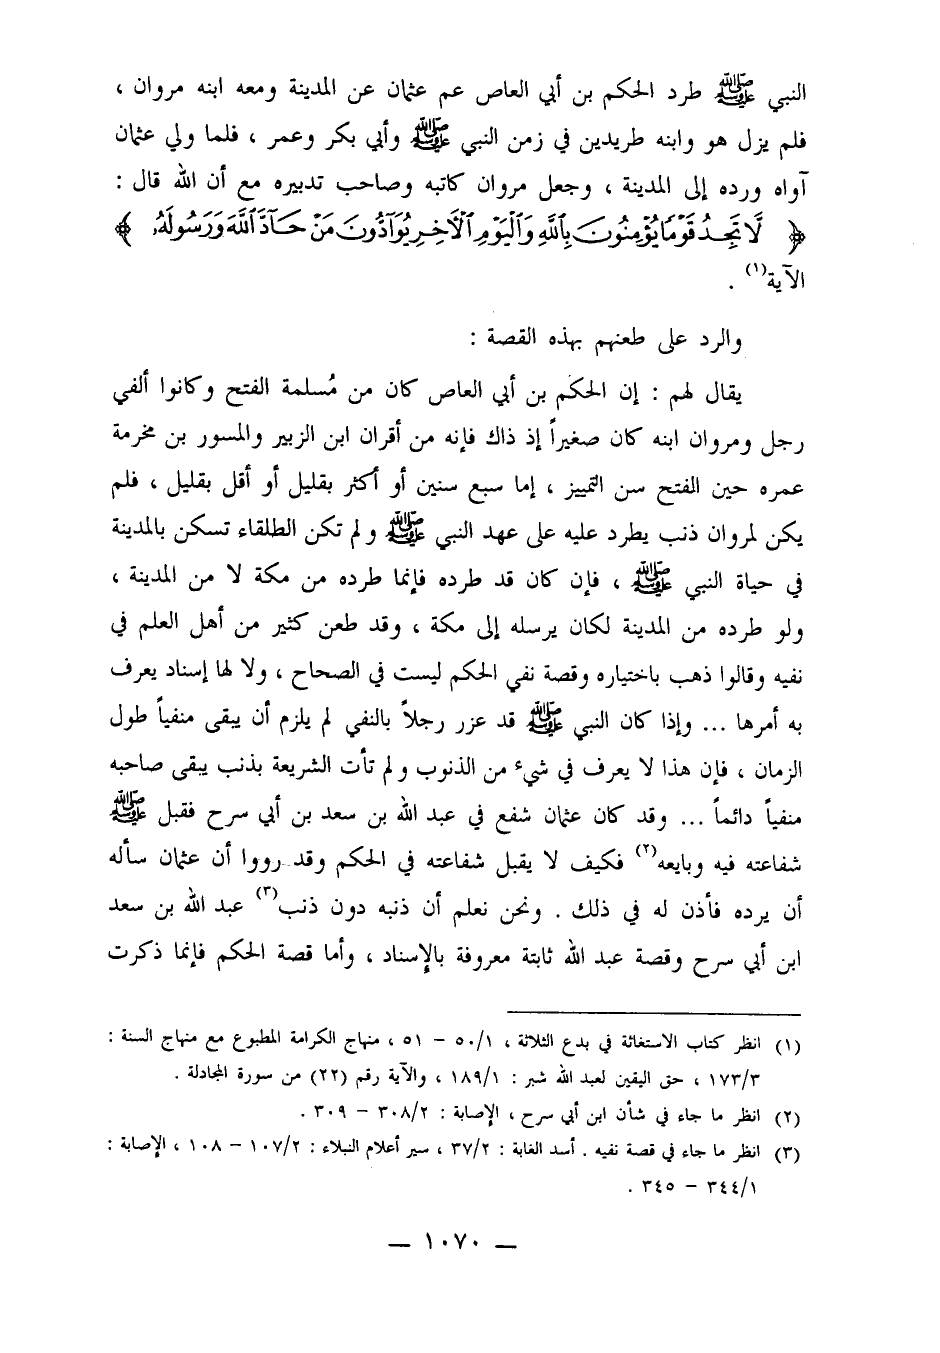 النبي ﷺ طرد الحكم بن أبي العاص عم عثمان عن المدينة ومعه ابنه مروان ،
فلم يزل هو وابنه طريدين في زمن النبي ﷺ وأبي بكر وعمر ، فلما ولي عثمان
آواه ورده إلى المدينة ، وجعل مروان كاتبه وصاحب تدبيره مع أن الله قال :
﴿ لَّا تَجِدُ قَوْمًا يُؤْمِنُونَ بِاللَّهِ وَالْيَوْمِ الْآخِرِ يُوَآدُّونَ مَنْ حَآدَّ اللَّهَ وَرَسُولَهُ ﴾
الآية(١) .
والرد على طعنهم بهذه القصة :
يقال لهم : إن الحكم بن أبي العاص كان من مُسلمة الفتح وكانوا ألفي
رجل ومروان ابنه كان صغيراً إذ ذاك فإنه من أقران ابن الزبير والمسور بن مخرمة
عمره حين الفتح سن التمييز ، إما سبع سنين أو أكثر بقليل أو أقل بقليل ، فلم
يكن لمروان ذنب يطرد عليه على عهد النبي ﷺ ولم تكن الطلقاء تسكن بالمدينة
في حياة النبي ﷺ ، فإن كان قد طرده فإنما طرده من مكة لا من المدينة ،
ولو طرده من المدينة لكان يرسله إلى مكة ، وقد طعن كثير من أهل العلم في
نفيه وقالوا ذهب باختياره وقصة نفي الحكم ليست في الصحاح ، ولا لها إسناد يعرف
به أمرها ... وإذا كان النبي ﷺ قد عزر رجلاً بالنفي لم يلزم أن يبقى منفياً طول
الزمان ، فإن هذا لا يعرف في شيء من الذنوب ولم تأت الشريعة بذنب يبقى صاحبه
منفياً دائماً ... وقد كان عثمان شفع في عبد الله بن سعد بن أبي سرح فقبل ﷺ
شفاعته فيه وبايعه(٢) فكيف لا يقبل شفاعته في الحكم وقد رووا أن عثمان سأله
أن يرده فأذن له في ذلك . ونحن نعلم أن ذنبه دون ذنب(٣) عبد الله بن سعد
ابن أبي سرح وقصة عبد الله ثابتة معروفة بالإسناد ، وأما قصة الحكم فإنما ذكرت
(١) انظر كتاب الاستغاثة في بدع الثلاثة ، ٥٠/١ – ٥١ ، منهاج الكرامة المطبوع مع منهاج السنة :
١٧٣/٣ ، حق اليقين لعبد الله شبر : ١٨٩/١ ، والآية رقم (٢٢) من سورة المجادلة .
(٢) انظر ما جاء في شأن ابن أبي سرح ، الإصابة : ٣٠٨/٢ – ٣٠٩ .
(٣) انظر ما جاء في قصة نفيه . أسد الغابة : ٣٧/٢ ، سير أعلام النبلاء : ١٠٧/٢ – ١٠٨ ، الإصابة :
٣٤٤/١ – ٣٤٥ .
— ١٠٧٠ —